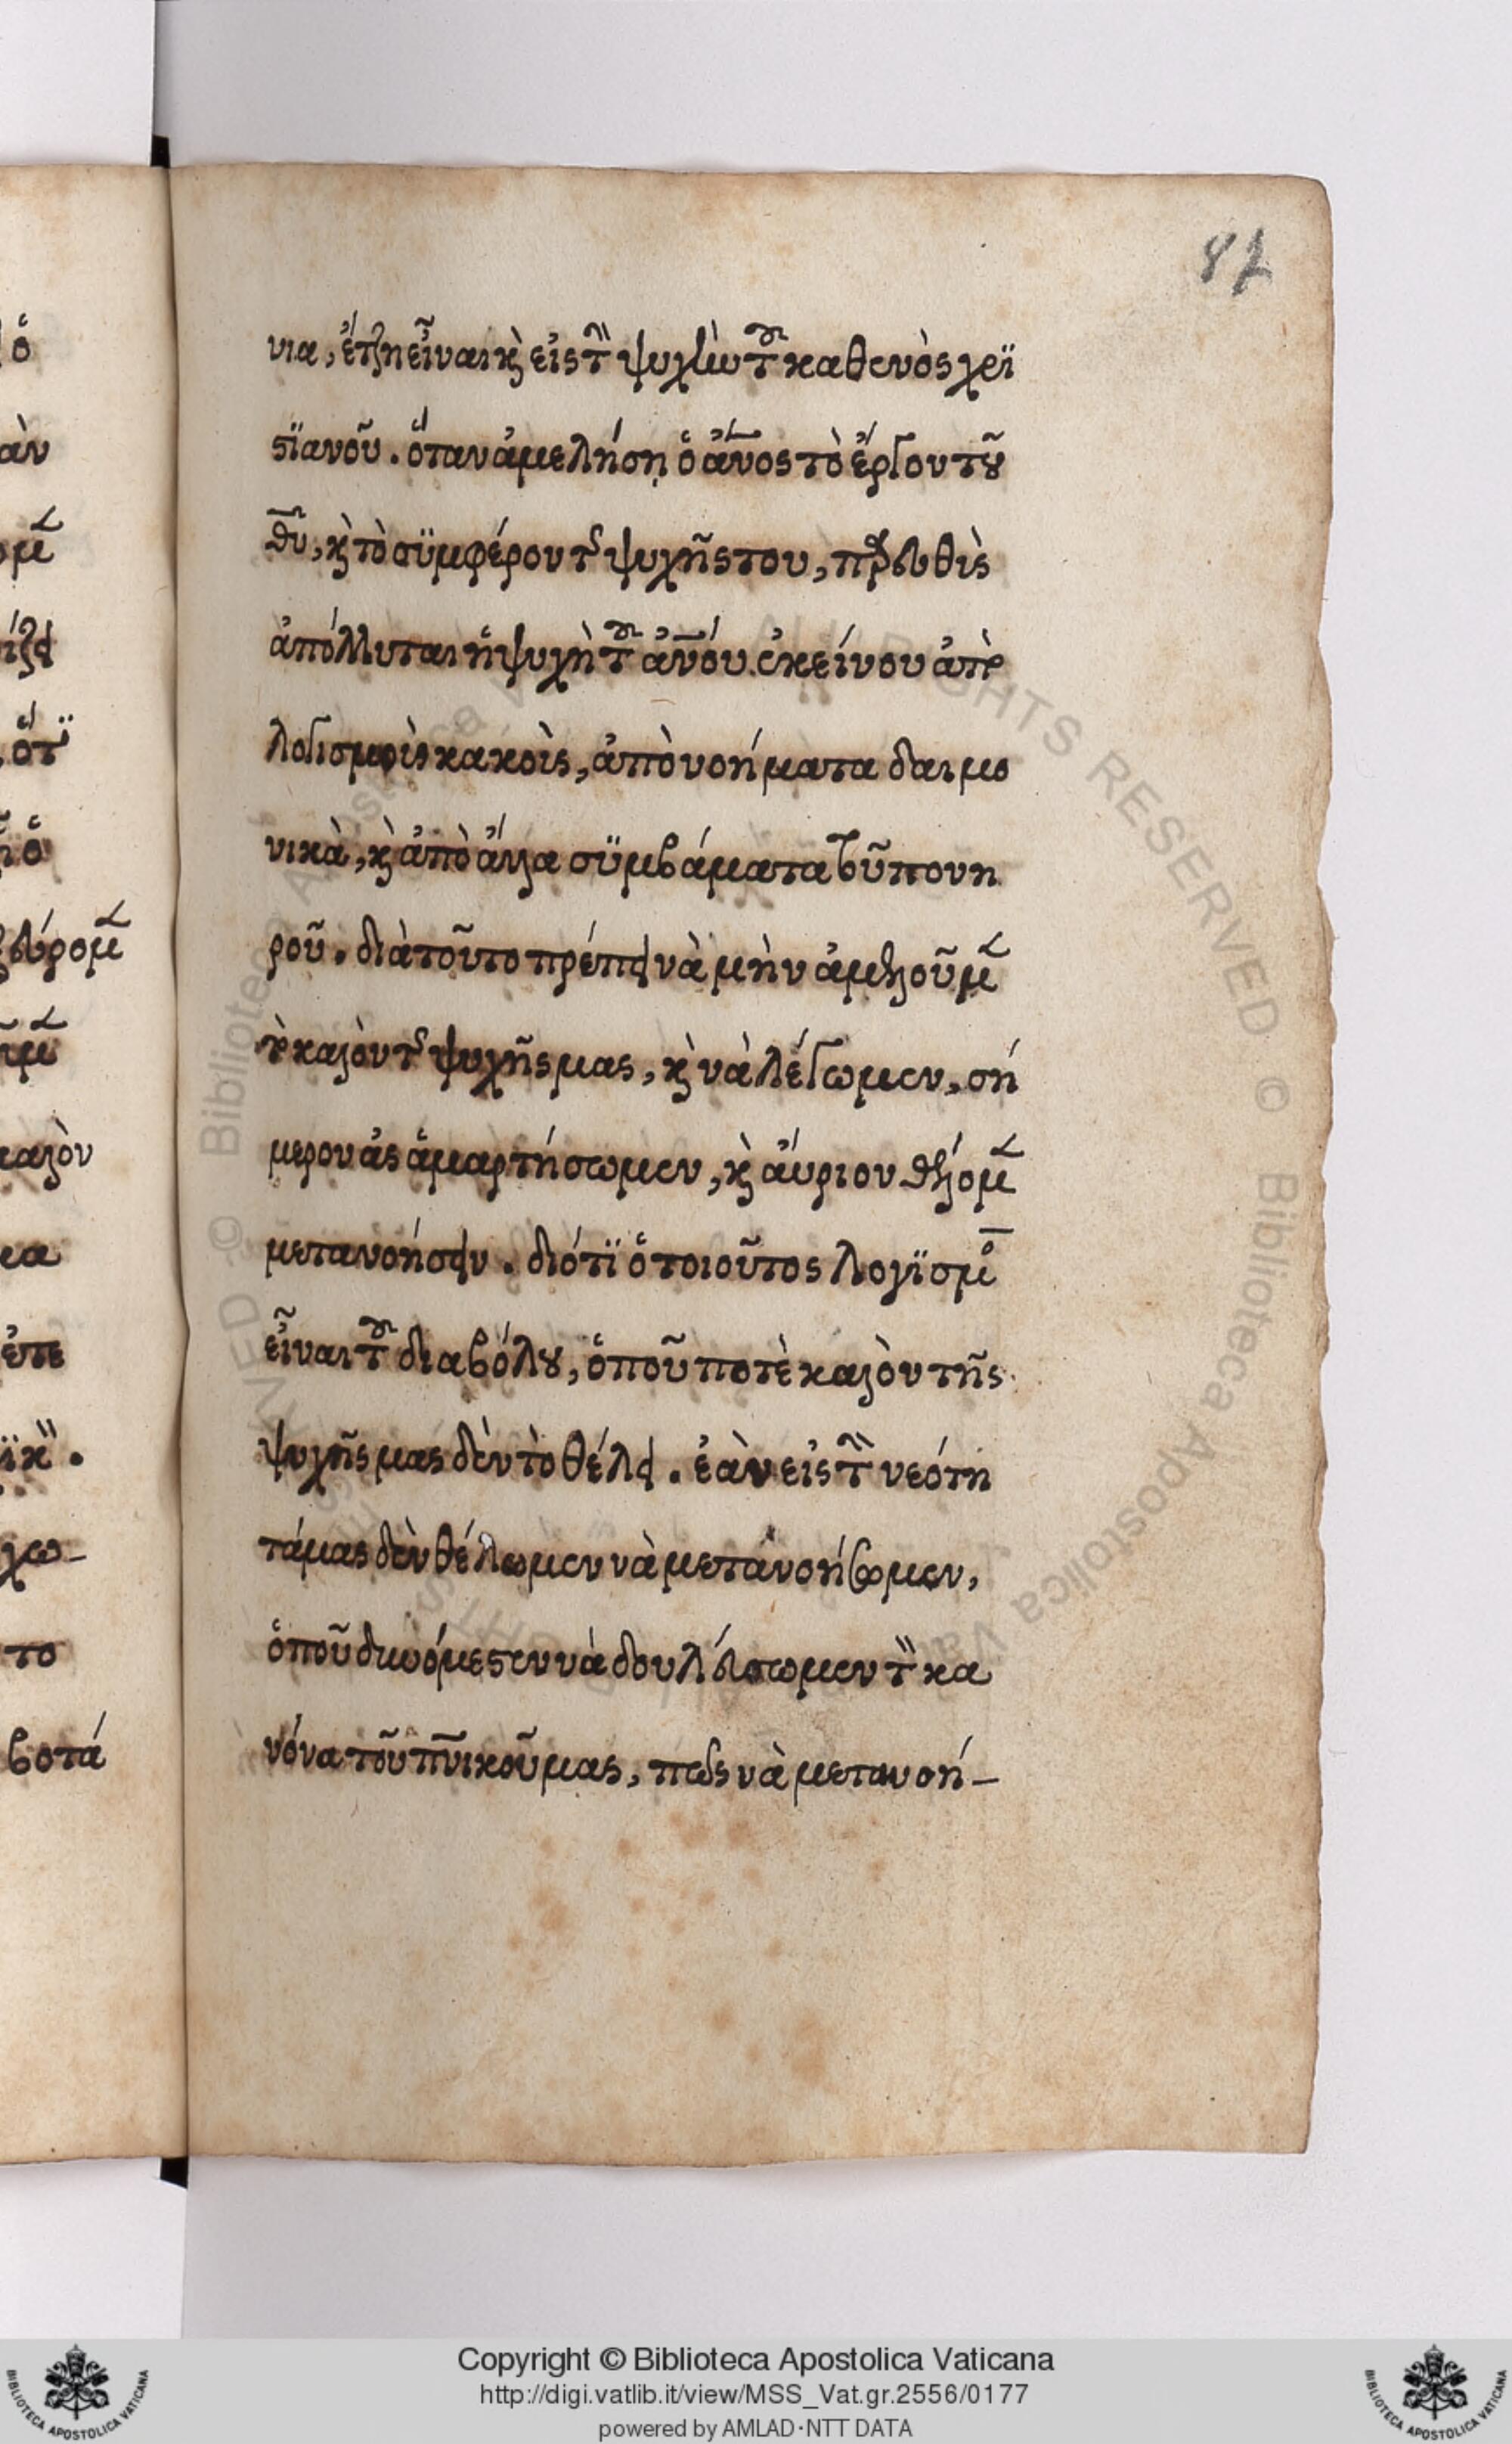 87
νια, ἔτζη εἶναι κὶ εἰς τὴν ψυχὴν τοῦ καθενὸς χρϊ
στϊανοῦ. ὅταν ἀμελήση ὁ ἄνος τὸ ἔργον τȣ͂
θῦ, κὶ τὸ σϋμφέρον τῆς ψυχῆς του, παρευθὶς
ἀπόλλυται ἡ ψυχὴ τοῦ ἀνόυ ἐκείνου ἀπὸ
λογισμοὶς κακοὶς, ἀπὸ νοήματα δαιμο
νικὰ, κὶ ἀπὸ ἄλλα σϋμβάματα τοῦ πονη
ροῦ. διὰ τοῦτο πρέπει νὰ μὴν ἀμελοῦμεν
τὸ καλὸν τῆς ψυχῆς μας, κὶ νὰ λέγωμεν, σή
μερον ἀς ἁμαρτήσωμεν, κὶ ἄυριον θέλομεν
μετανοήσειν. διότϊ ὁ τοιοῦτος λογϊσμὸς
εἶναι τοῦ διαβόλȣ, ὁποῦ ποτὲ καλὸν τῆς
ψυχῆς μας δὲν τὸ θέλει. ἐὰν εἰς τὴν νεότη
τά μας δὲν θέλωμεν νὰ μετανοήσωμεν,
ὁποῦ δυνόμεστεν νὰ δουλεύσωμεν τὸν κα
νόνα τοῦ πνικοῦ μας, πῶς νὰ μετανοή-
Copyright © Biblioteca Apostolica Vaticana
http://digi.vatlib.it/view/MSS_Vat.gr.2556/0177
powered by AMLAD·NTT DATA